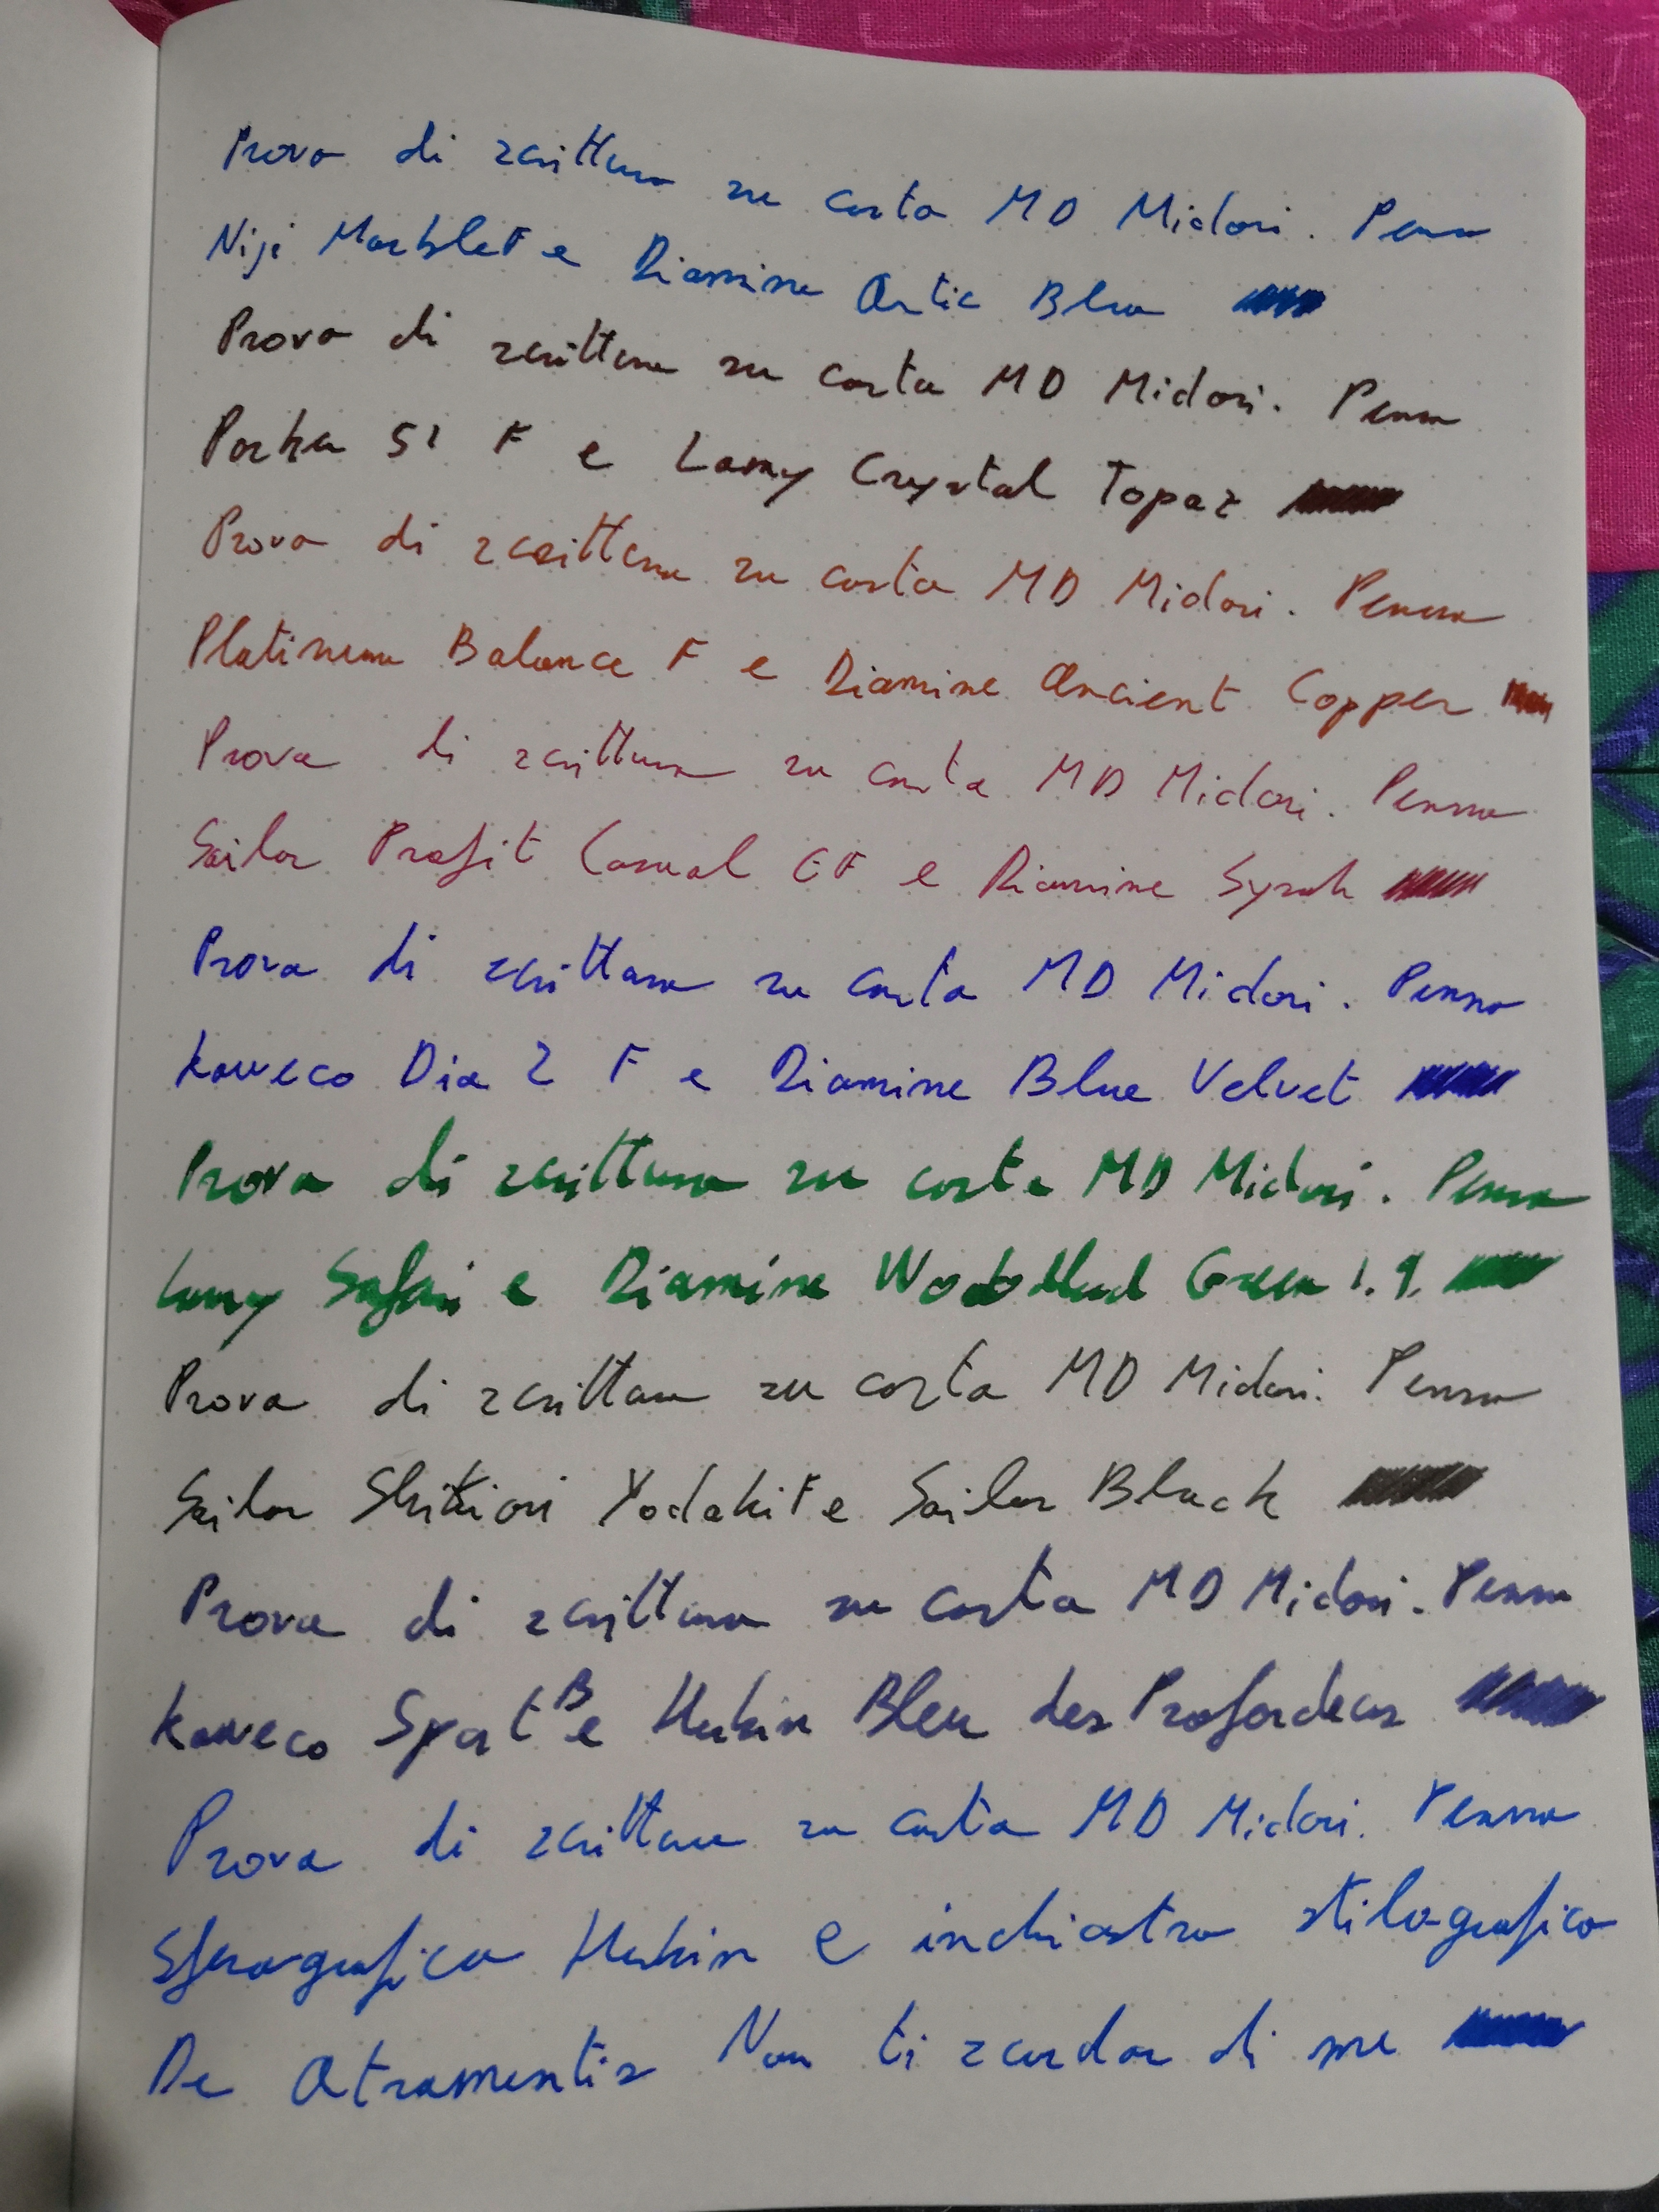 Prova di scrittura su carta MD Midori. Penna
Niji Marble F e Diamine Artic Blue
Prova di scrittura su carta MD Midori. Penna
Parker 51 F e Lamy Crystal Topaz
Prova di scrittura su carta MD Midori. Penna
Platinum Balance F e Diamine Ancient Copper
Prova di scrittura su carta MD Midori. Penna
Sailor Profit Casual EF e Diamine Syrah
Prova di scrittura su carta MD Midori. Penna
Kaweco Dia 2 F e Diamine Blue Velvet
Prova di scrittura su carta MD Midori. Penna
Lamy Safari e Diamine Green 1.9.
Prova di scrittura su carta MD Midori. Penna
Sailor Shikiori Yodaki F e Sailor Black
Prova di scrittura su carta MD Midori. Penna
Kaweco Sport B e Herbin Bleu des
Prova di scrittura su carta MD Midori. Penna
Sferografica Herbin e inchiostro stilografico
De Atramentis Non ti scordar di me